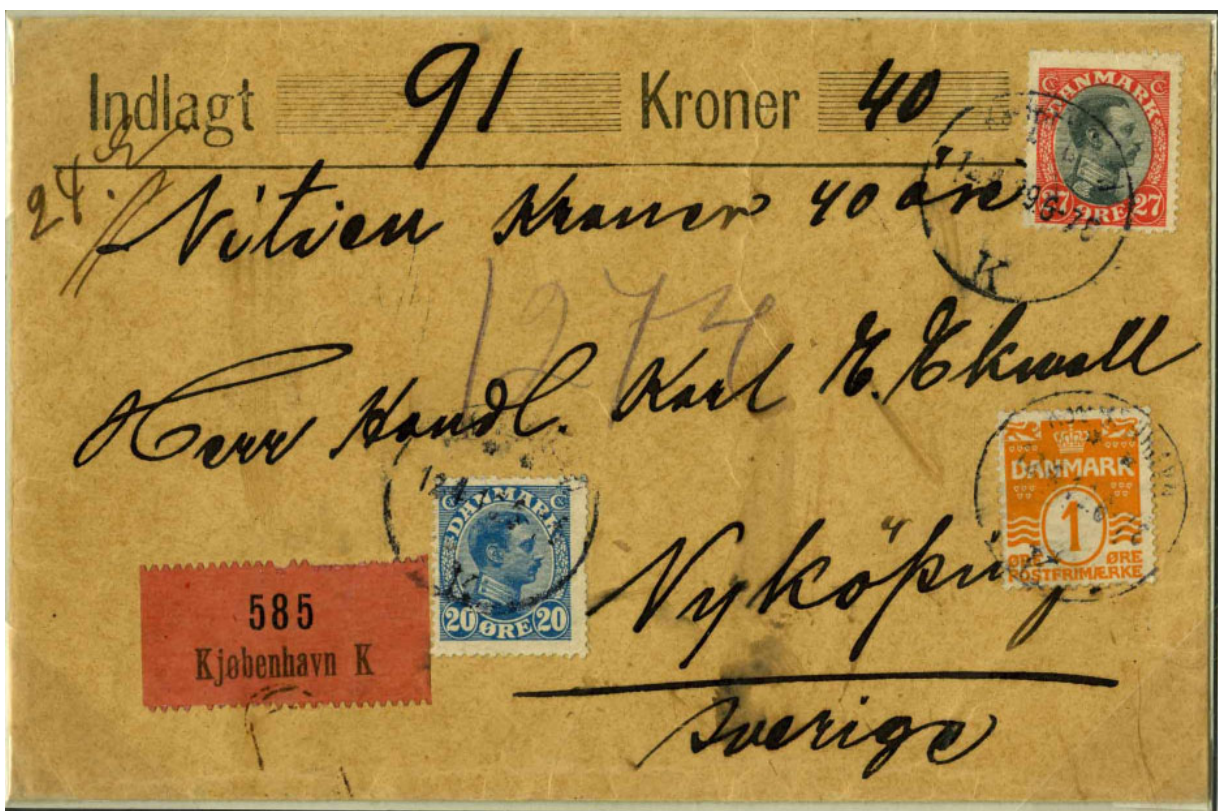 Indlagt 91 Kroner 40
24.
Nitien Kroner 40 öre
1274
Herr Handl. Karl E. Ekwall
Nyköping
Sverige
585
Kjøbenhavn K
DANMARK
27 ØRE 27
K
DANMARK
20 ØRE 20
K
DANMARK
1
ØRE ØRE
POSTFRIMÆRKE